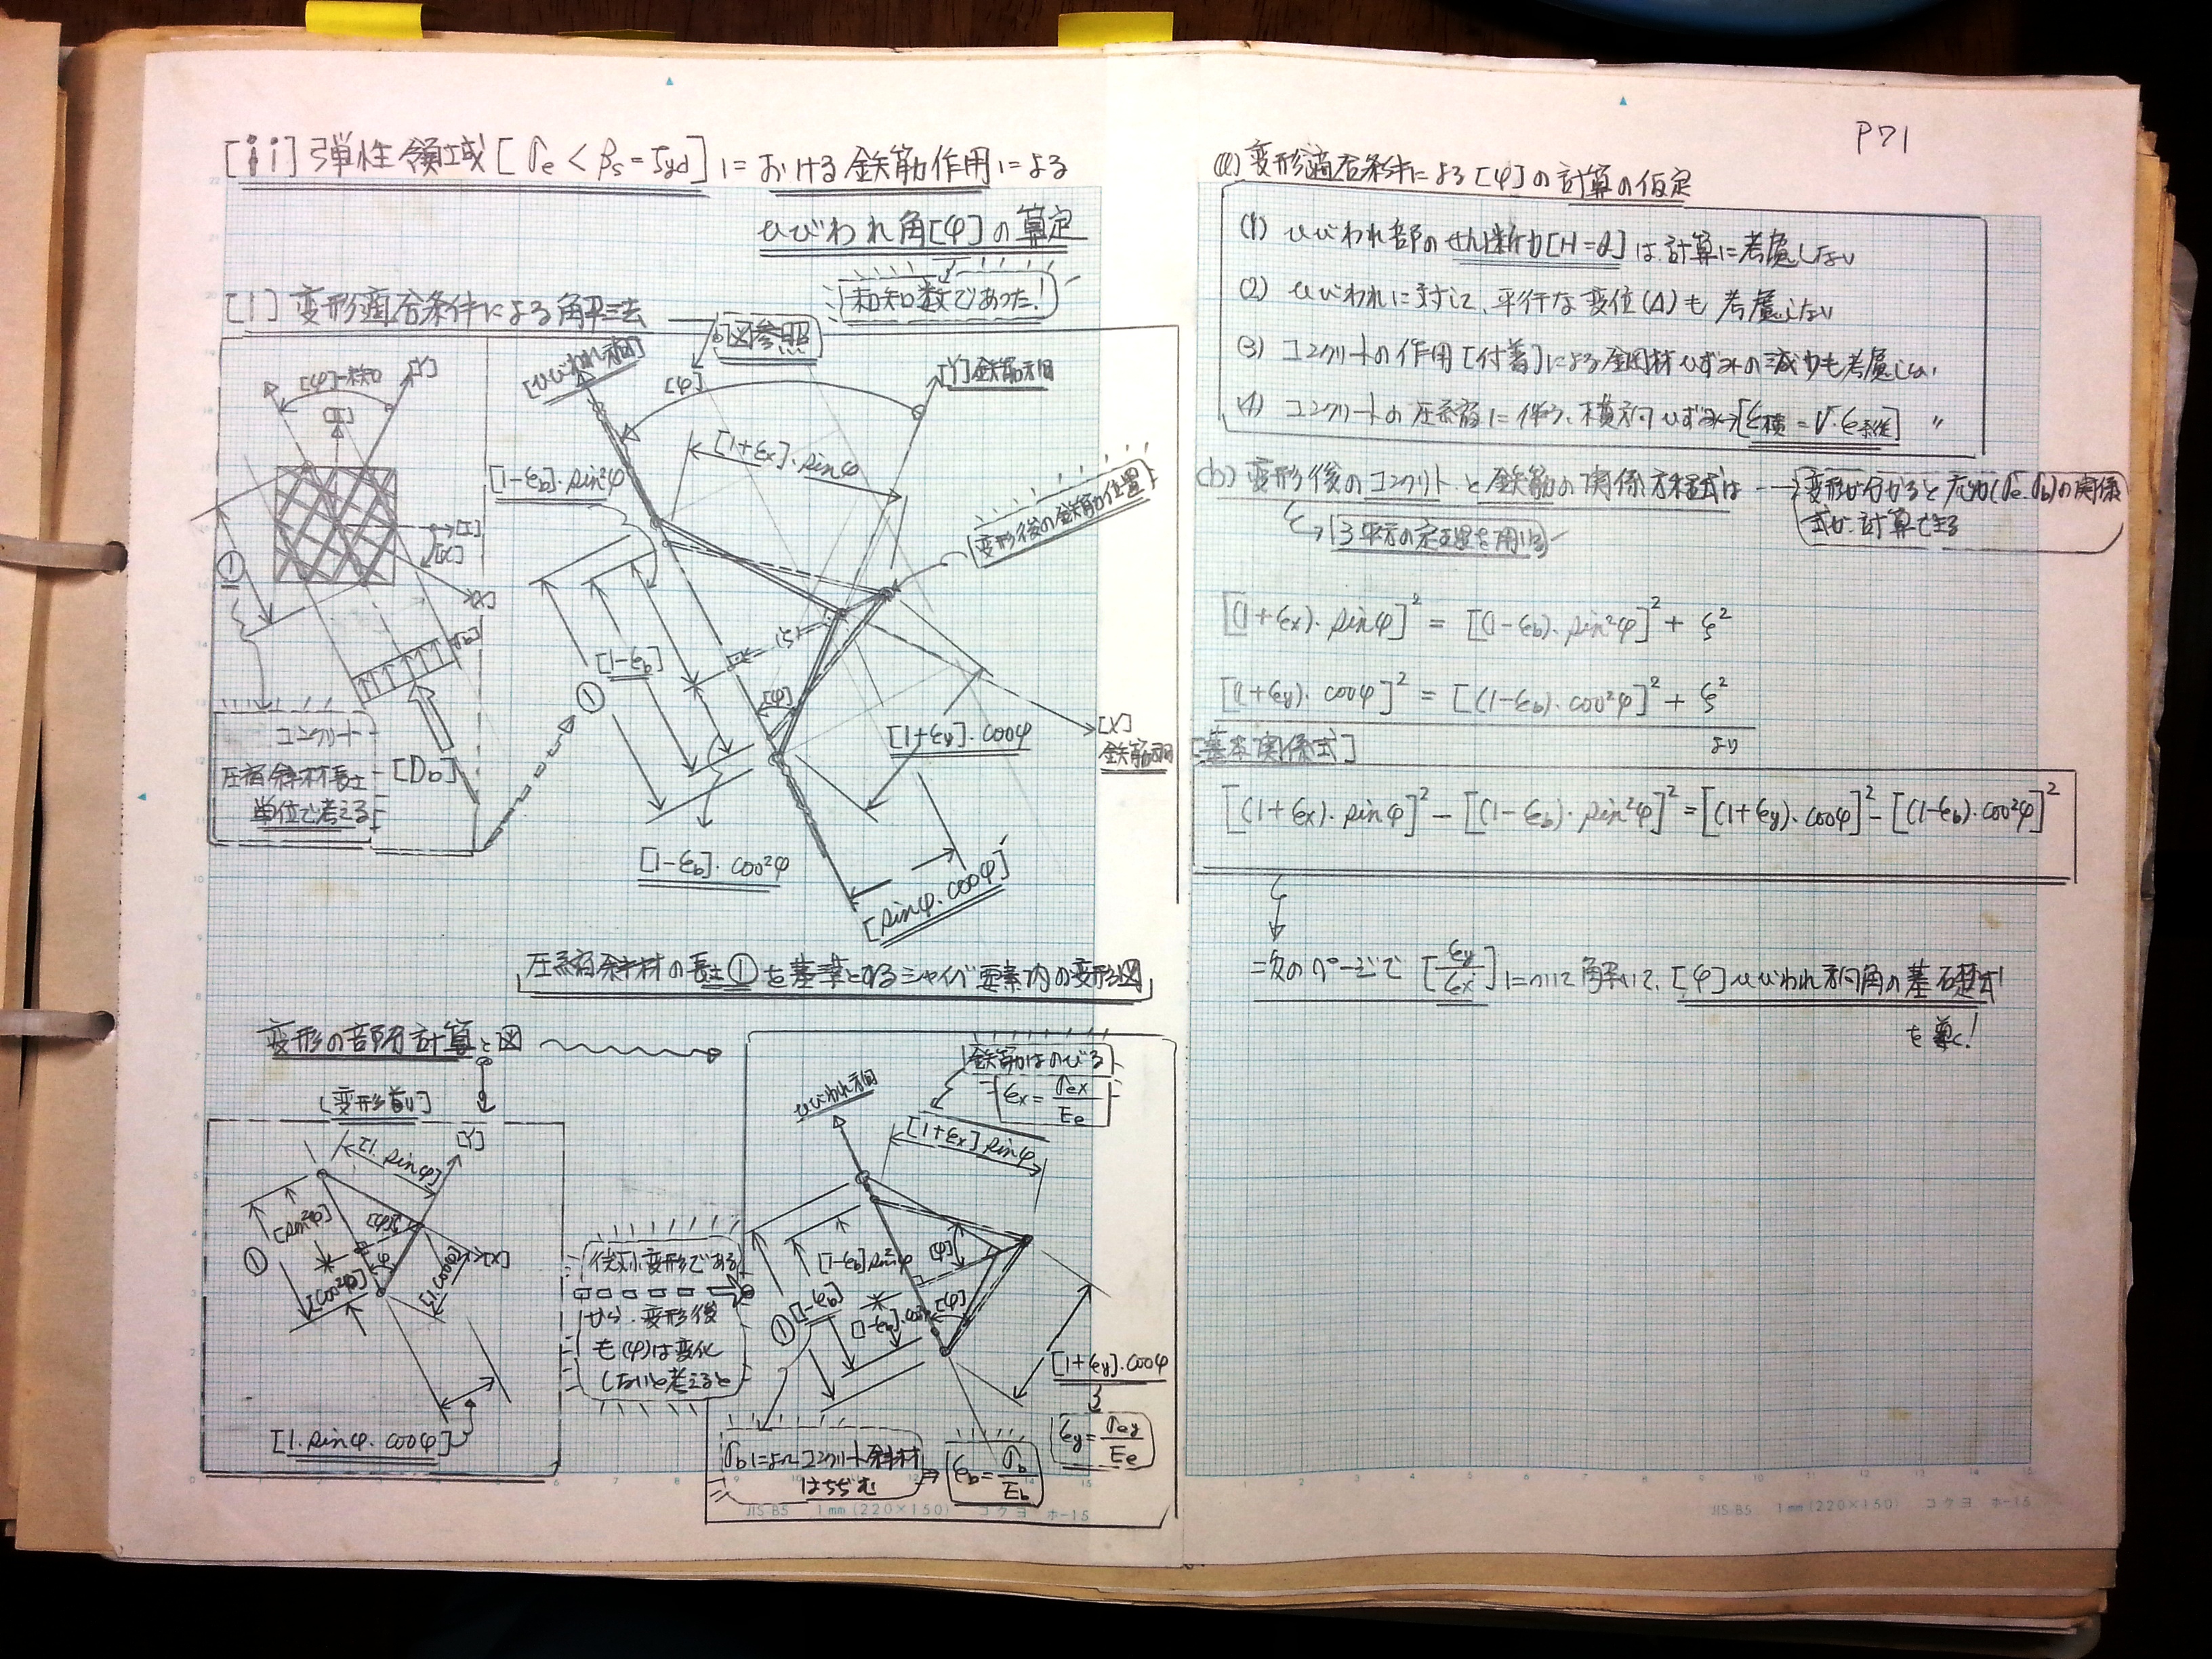 [ii] 弾性領域[σe < βs = σyd]における鉄筋作用による
ひびわれ角[φ]の算定
未知数であった!
[1] 変形適合条件による解法
図参照
[φ]=未知
[Y]
[X]
①
[Db]
コンクリート
圧縮斜材長を
単位で考える
[ひびわれ方向]
[φ]
[Y]鉄筋方向
[1+εx]・sinφ
[1-εb]・sin²φ
変形後の鉄筋の位置
[1-εb]
①
[φ]
[1+εy]・cosφ
[X]
鉄筋方向
[1-εb]・cos²φ
[sinφ・cosφ]
圧縮斜材の長さ①を基準とするシャイベ要素内の変形図
変形の部分計算と図
[変形前]
[Y]
[1・sinφ]
[sin²φ]
[φ]
①
[X]
[cos²φ]
[1・cosφ]
[1・sinφ・cosφ]
微小変形である
から、変形後
も(φ)は変化
しないと考えると
鉄筋はのびる
εx = σex/Ee
ひびわれ方向
[1+εx]sinφ
[1-εb]sin²φ
[φ]
[1-εb]
①
[φ]
[1+εy]・cosφ
εy = σey/Ee
σbによってコンクリート斜材
はちぢむ
εb = σb/Eb
JIS B5 1mm (220×150) コクヨ ホ-15
P71
(a) 変形適合条件による[φ]の計算の仮定
(1) ひびわれ部のせん断力[H=0]は計算に考慮しない
(2) ひびわれに対して、平行な変位(Δ)も考慮しない
(3) コンクリートの作用[付着]による鋼材ひずみの減少も考慮しない
(4) コンクリートの圧縮に伴う、横方向ひずみ→[ε横=ν・ε縦] 〃
(b) 変形後のコンクリートと鉄筋の関係方程式は
→変形が分かると応力(σe、σb)の関係
式が計算できる
3平方の定理を用いる
[(1+εx)・sinφ]² = [(1-εb)・sin²φ]² + ξ²
[(1+εy)・cosφ]² = [(1-εb)・cos²φ]² + ξ²
より
[基本関係式]
[(1+εx)・sinφ]² - [(1-εb)・sin²φ]² = [(1+εy)・cosφ]² - [(1-εb)・cos²φ]²
=次のページで[εy/εx]について解いて、[φ]ひびわれ方向角の基礎式
を導く!
JIS B5 1mm (220×150) コクヨ ホ-15